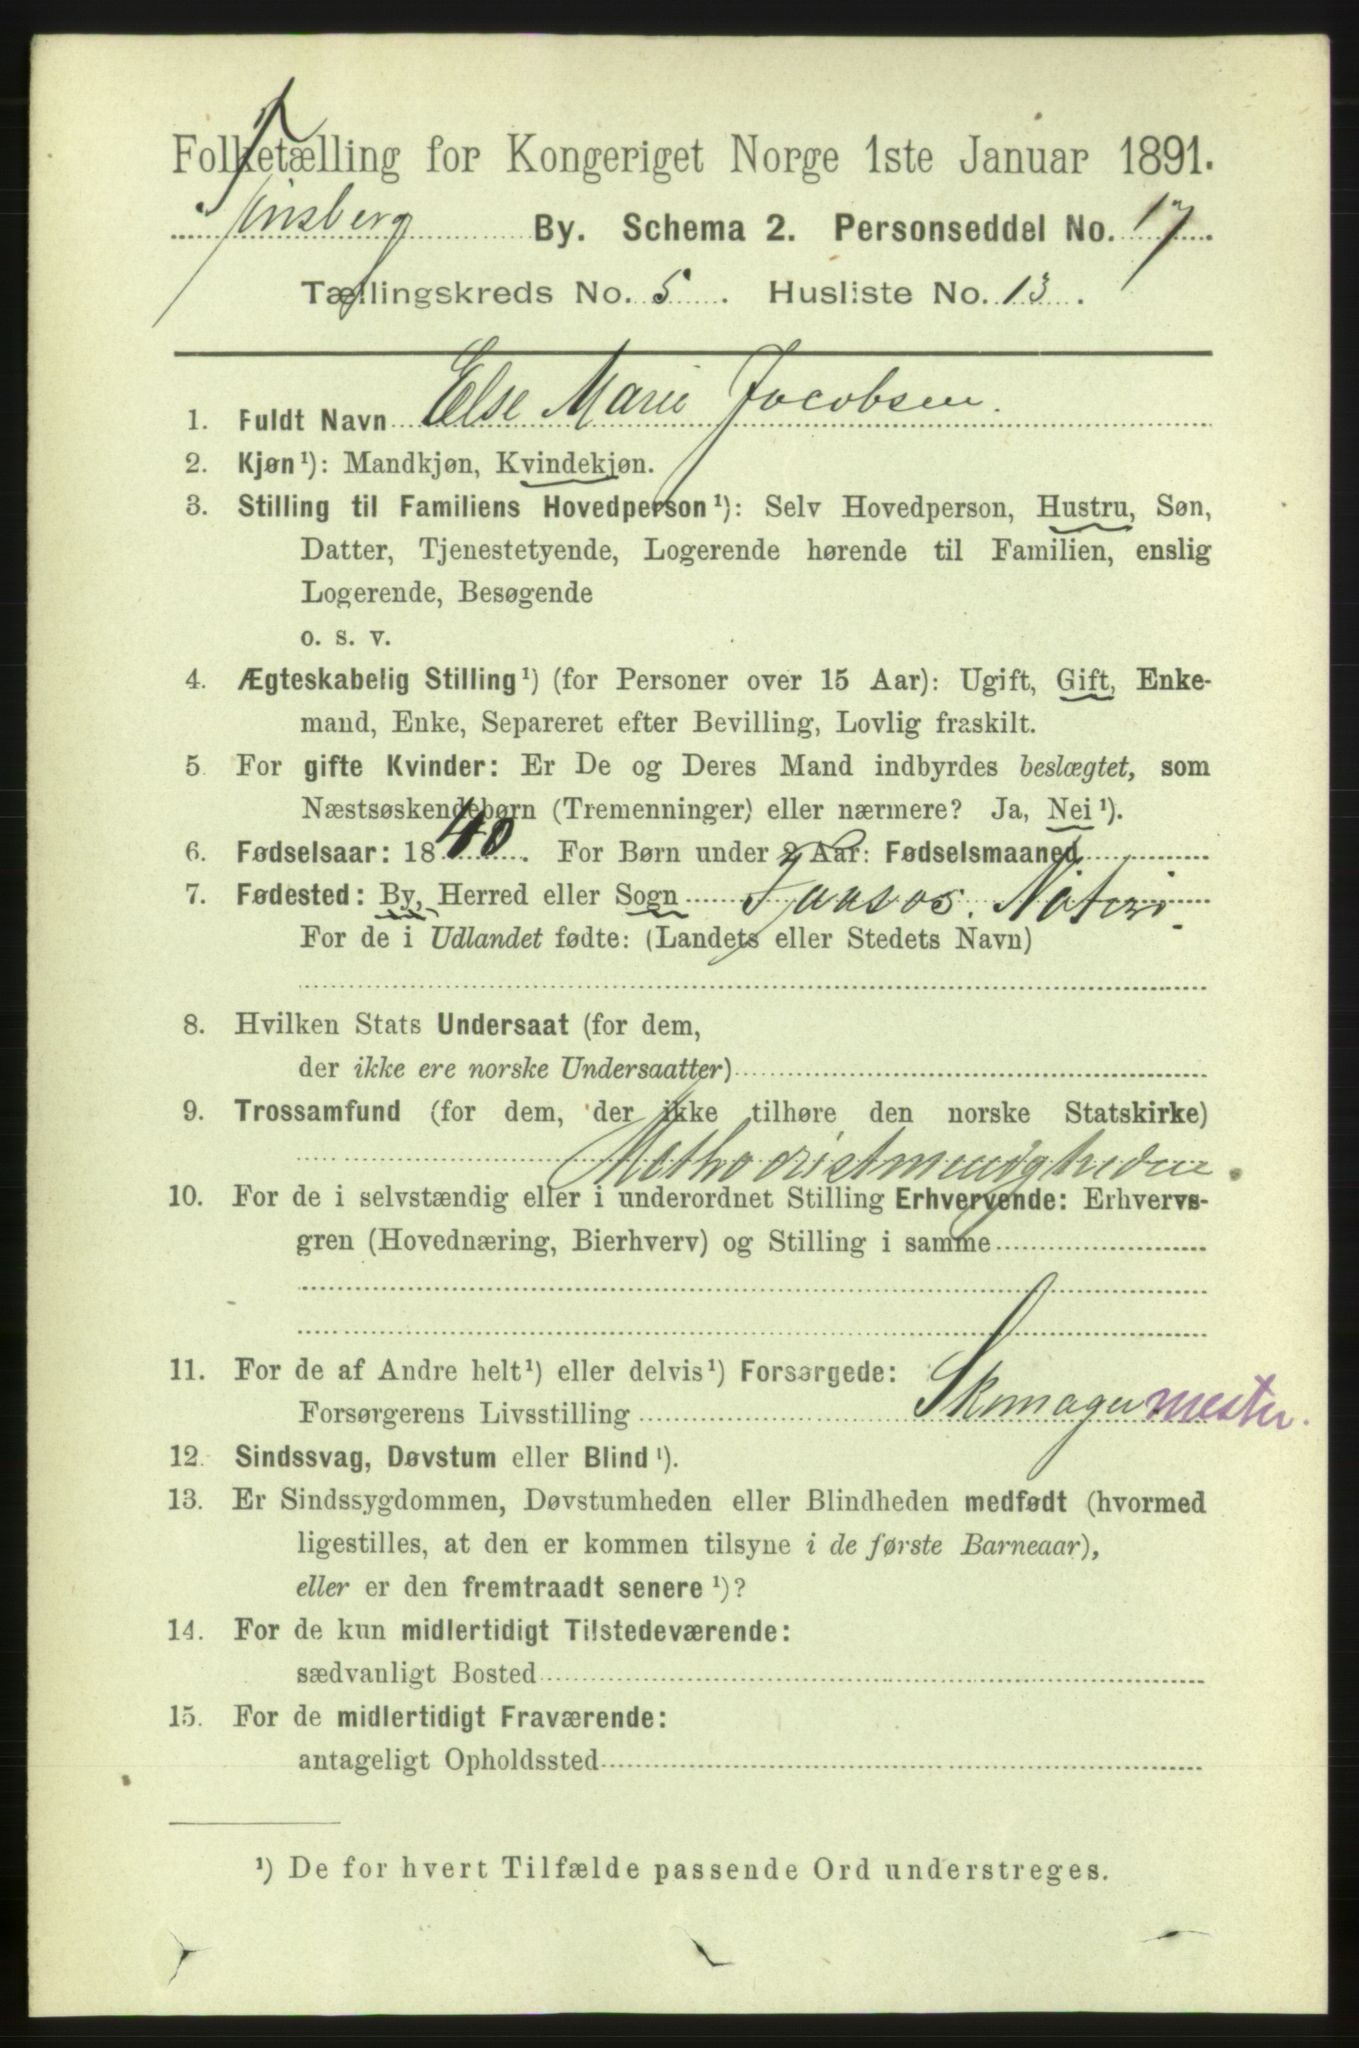 Folketælling for Kongeriget Norge 1ste Januar 1891.
Tønsberg By. Schema 2. Personseddel No. 17.
Tællingskreds No. 5. Husliste No. 13.
1. Fuldt Navn Else Marie Jacobsen.
2. Kjøn¹): Mandkjøn, Kvindekjøn.
3. Stilling til Familiens Hovedperson¹): Selv Hovedperson, Hustru, Søn,
Datter, Tjenestetyende, Logerende hørende til Familien, enslig
Logerende, Besøgende
o. s. v.
4. Ægteskabelig Stilling¹) (for Personer over 15 Aar): Ugift, Gift, Enke-
mand, Enke, Separeret efter Bevilling, Lovlig fraskilt.
5 For gifte Kvinder: Er De og Deres Mand indbyrdes beslægtet, som
Næstsøskendebørn (Tremenninger) eller nærmere? Ja, Nei¹).
6. Fødselsaar: 1840. For Børn under 2 Aar: Fødselsmaaned
7. Fødested: By, Herred eller Sogn Faasos. Nøterø.
For de i Udlandet fødte: (Landets eller Stedets Navn)
8. Hvilken Stats Undersaat (for dem,
der ikke ere norske Undersaatter)
9. Trossamfund (for dem, der ikke tilhøre den norske Statskirke)
Methodistmenigheden.
10. For de i selvstændig eller i underordnet Stilling Erhvervende: Erhvervs-
gren (Hovednæring, Bierhverv) og Stilling i samme
11. For de af Andre helt¹) eller delvis¹) Forsørgede:
Forsørgerens Livsstilling Skomagermester.
12. Sindssvag, Døvstum eller Blind¹).
13. Er Sindssygdommen, Døvstumheden eller Blindheden medfødt (hvormed
ligestilles, at den er kommen tilsyne i de første Barneaar),
eller er den fremtraadt senere¹)?
14. For de kun midlertidigt Tilstedeværende:
sædvanligt Bosted
15. For de midlertidigt Fraværende:
antageligt Opholdssted
¹) De for hvert Tilfælde passende Ord understreges.